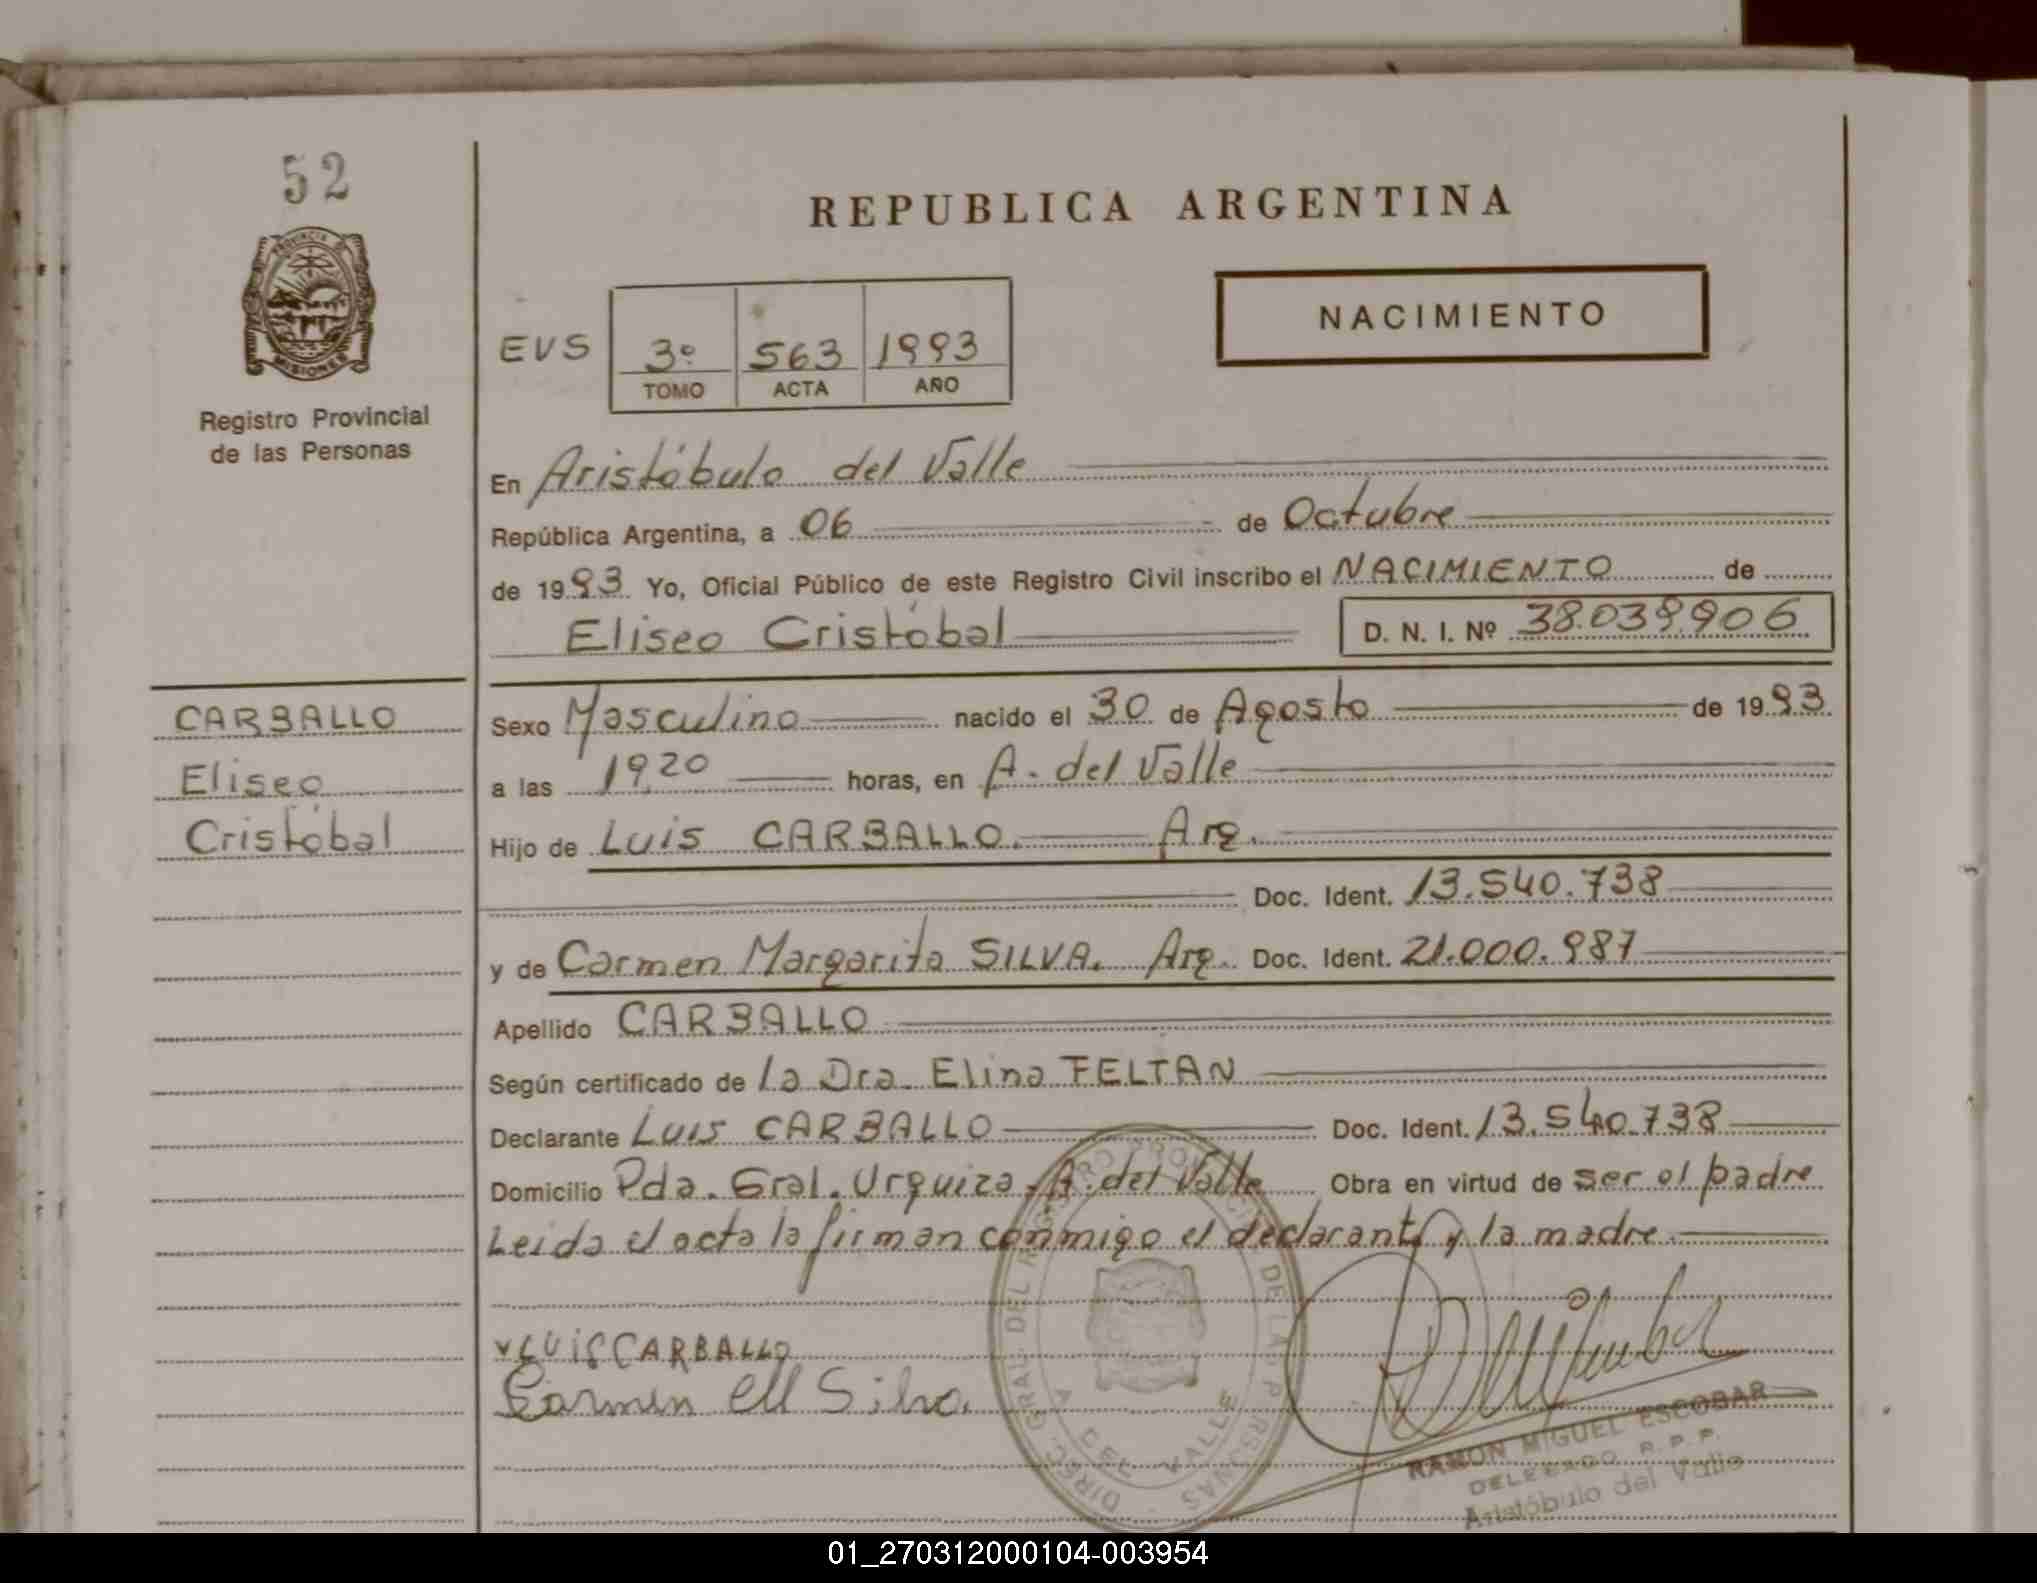 52
REPUBLICA ARGENTINA
PROVINCIA DE
MISIONES
NACIMIENTO
EVS 3º 563 1993
TOMO ACTA AÑO
Registro Provincial
de las Personas
En Aristóbulo del Valle
República Argentina, a 06 de Octubre
de 1993 Yo, Oficial Público de este Registro Civil inscribo el NACIMIENTO de
Eliseo Cristóbal D. N. I. Nº 38.039.906
CARBALLO
Eliseo
Cristóbal
Sexo Masculino nacido el 30 de Agosto de 1993
a las 19,20 horas, en A. del Valle
Hijo de Luis CARBALLO. Arg.
Doc. Ident. 13.540.738
y de Carmen Margarita SILVA. Arg. Doc. Ident. 21.000.987
Apellido CARBALLO
Según certificado de la Dra. Elina FELTAN
Declarante Luis CARBALLO Doc. Ident. 13.540.738
Domicilio Pda. Gral. Urquiza. A. del Valle Obra en virtud de ser el padre
Leida el acta la firman conmigo el declarante y la madre.
LUIS CARBALLO
Carmen M Silva.
DIREC. GRAL. DEL REGISTRO PROVINCIAL DE LAS PERSONAS
A. DEL VALLE
RAMON MIGUEL ESCOBAR
DELEGADO R. P. P.
Aristóbulo del Valle
01_270312000104-003954